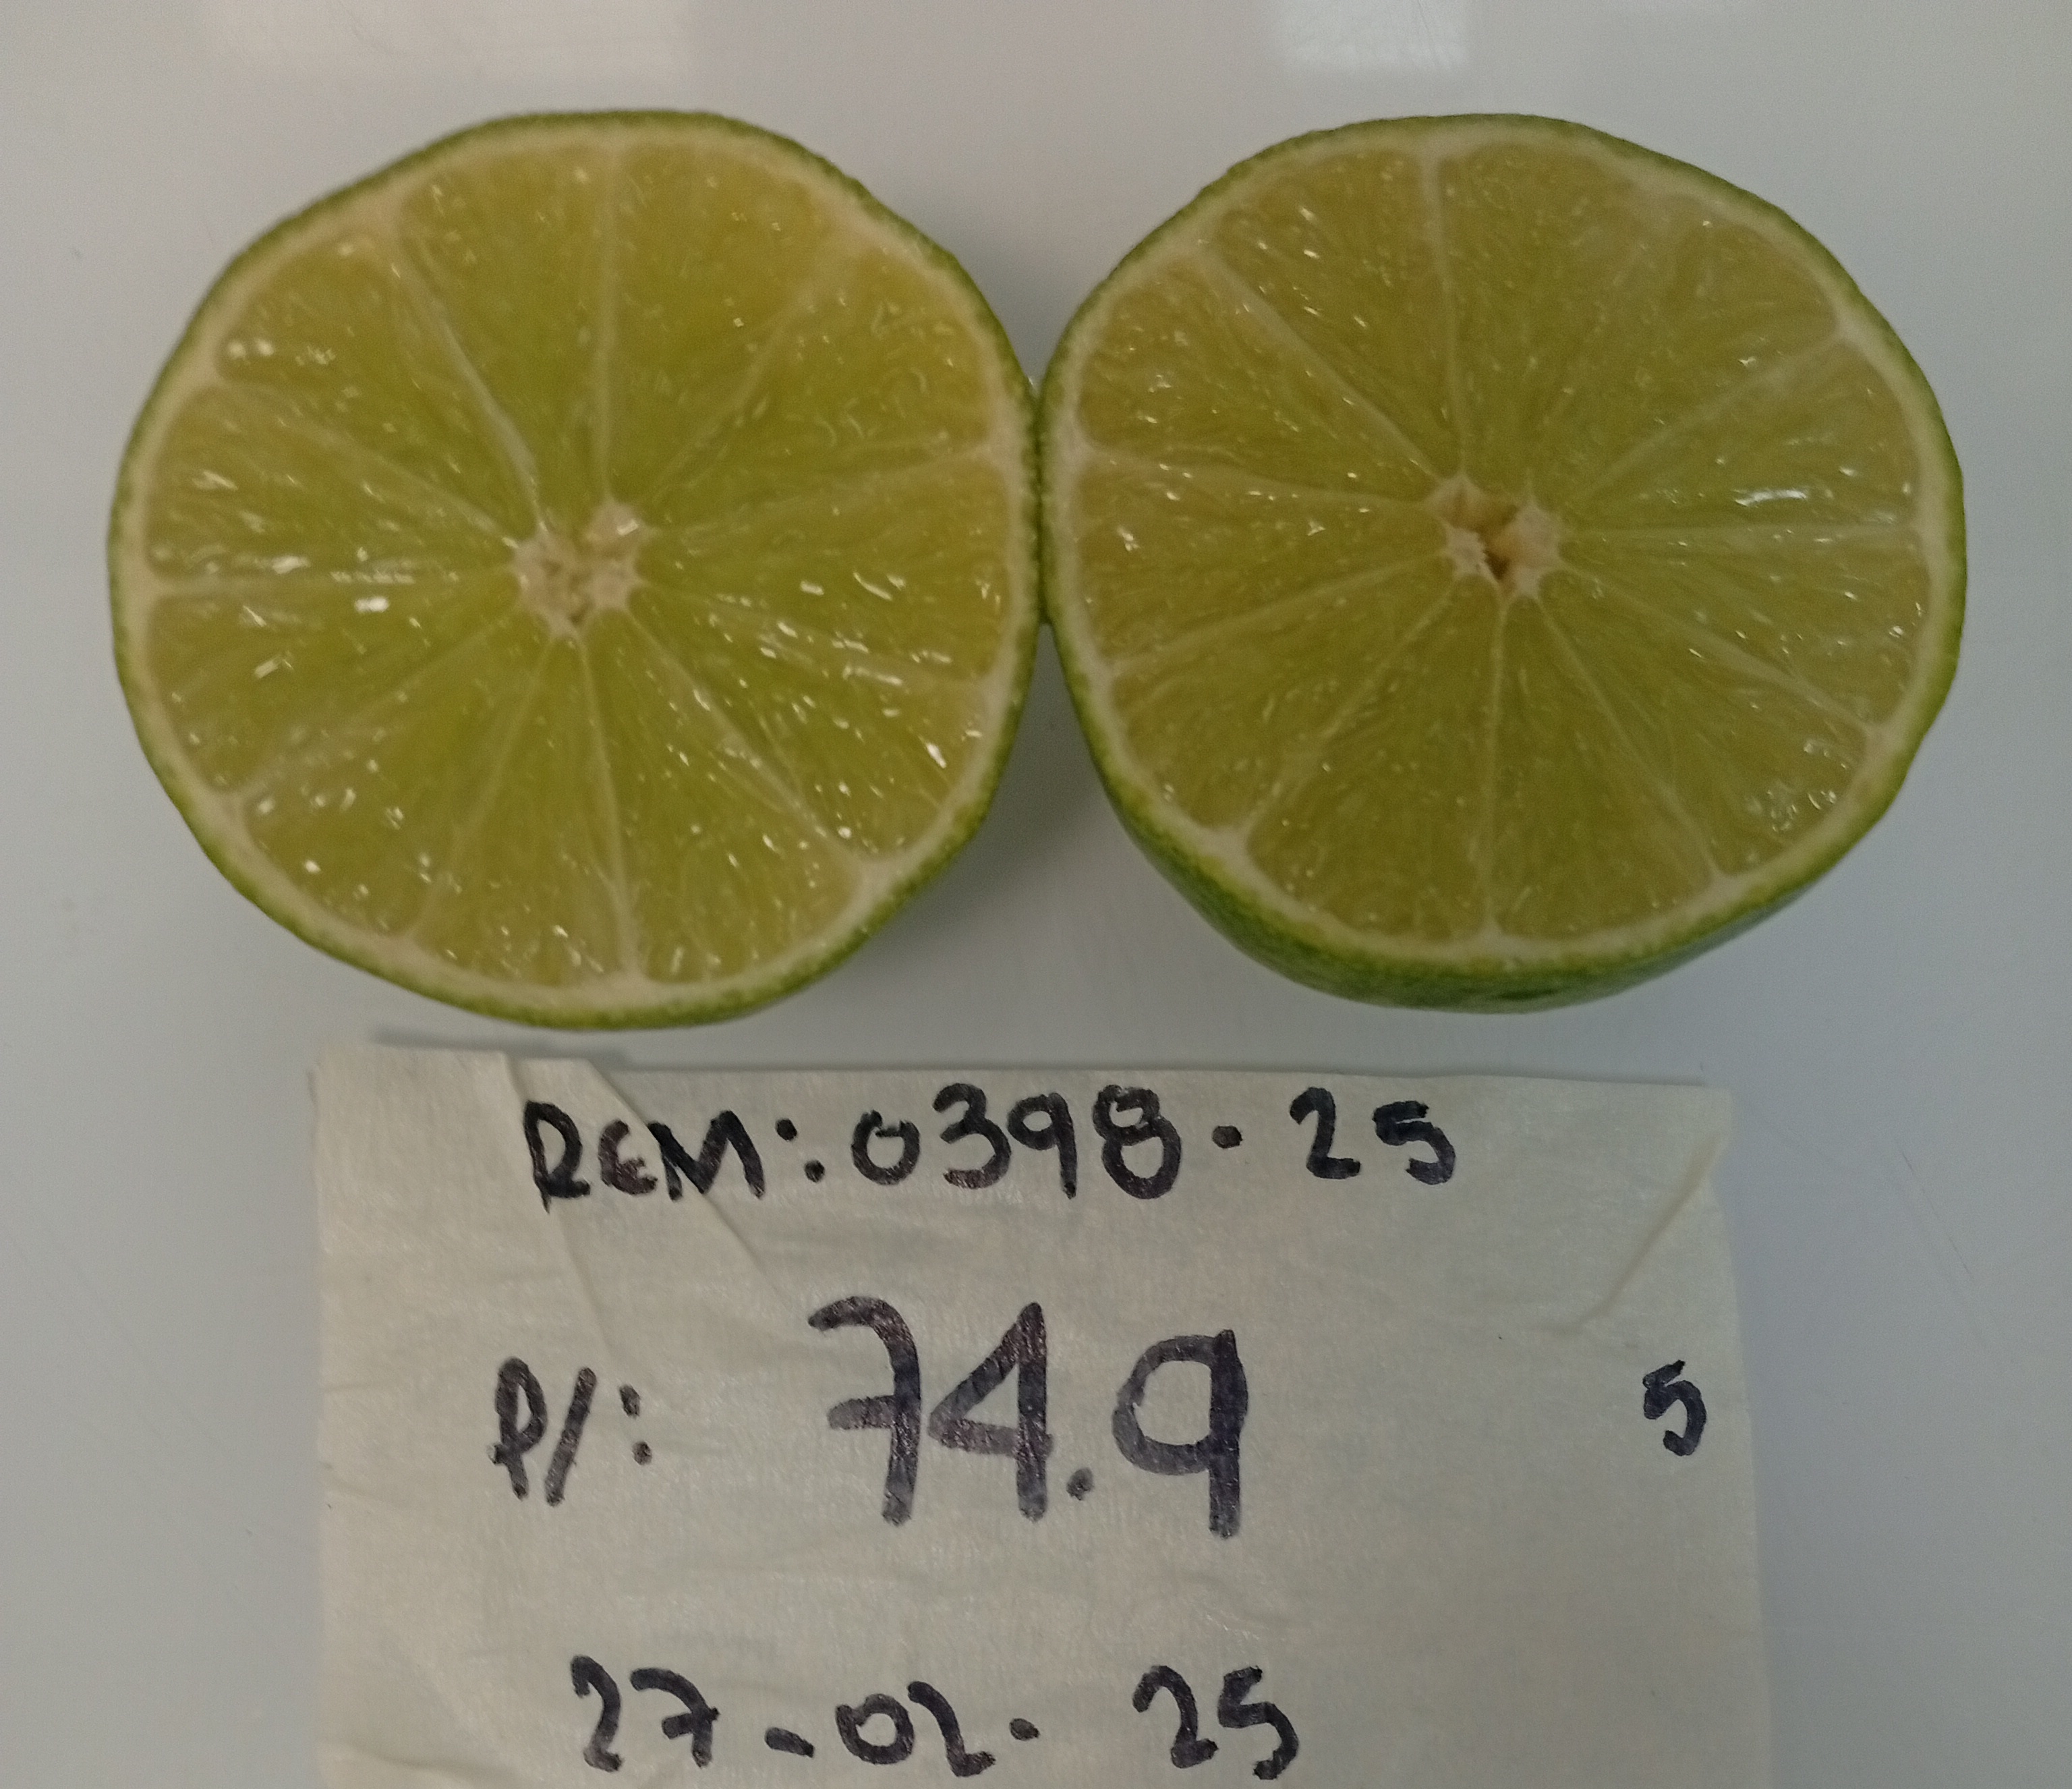 REM: 0398-25
P/: 74.9 5
27-02-25